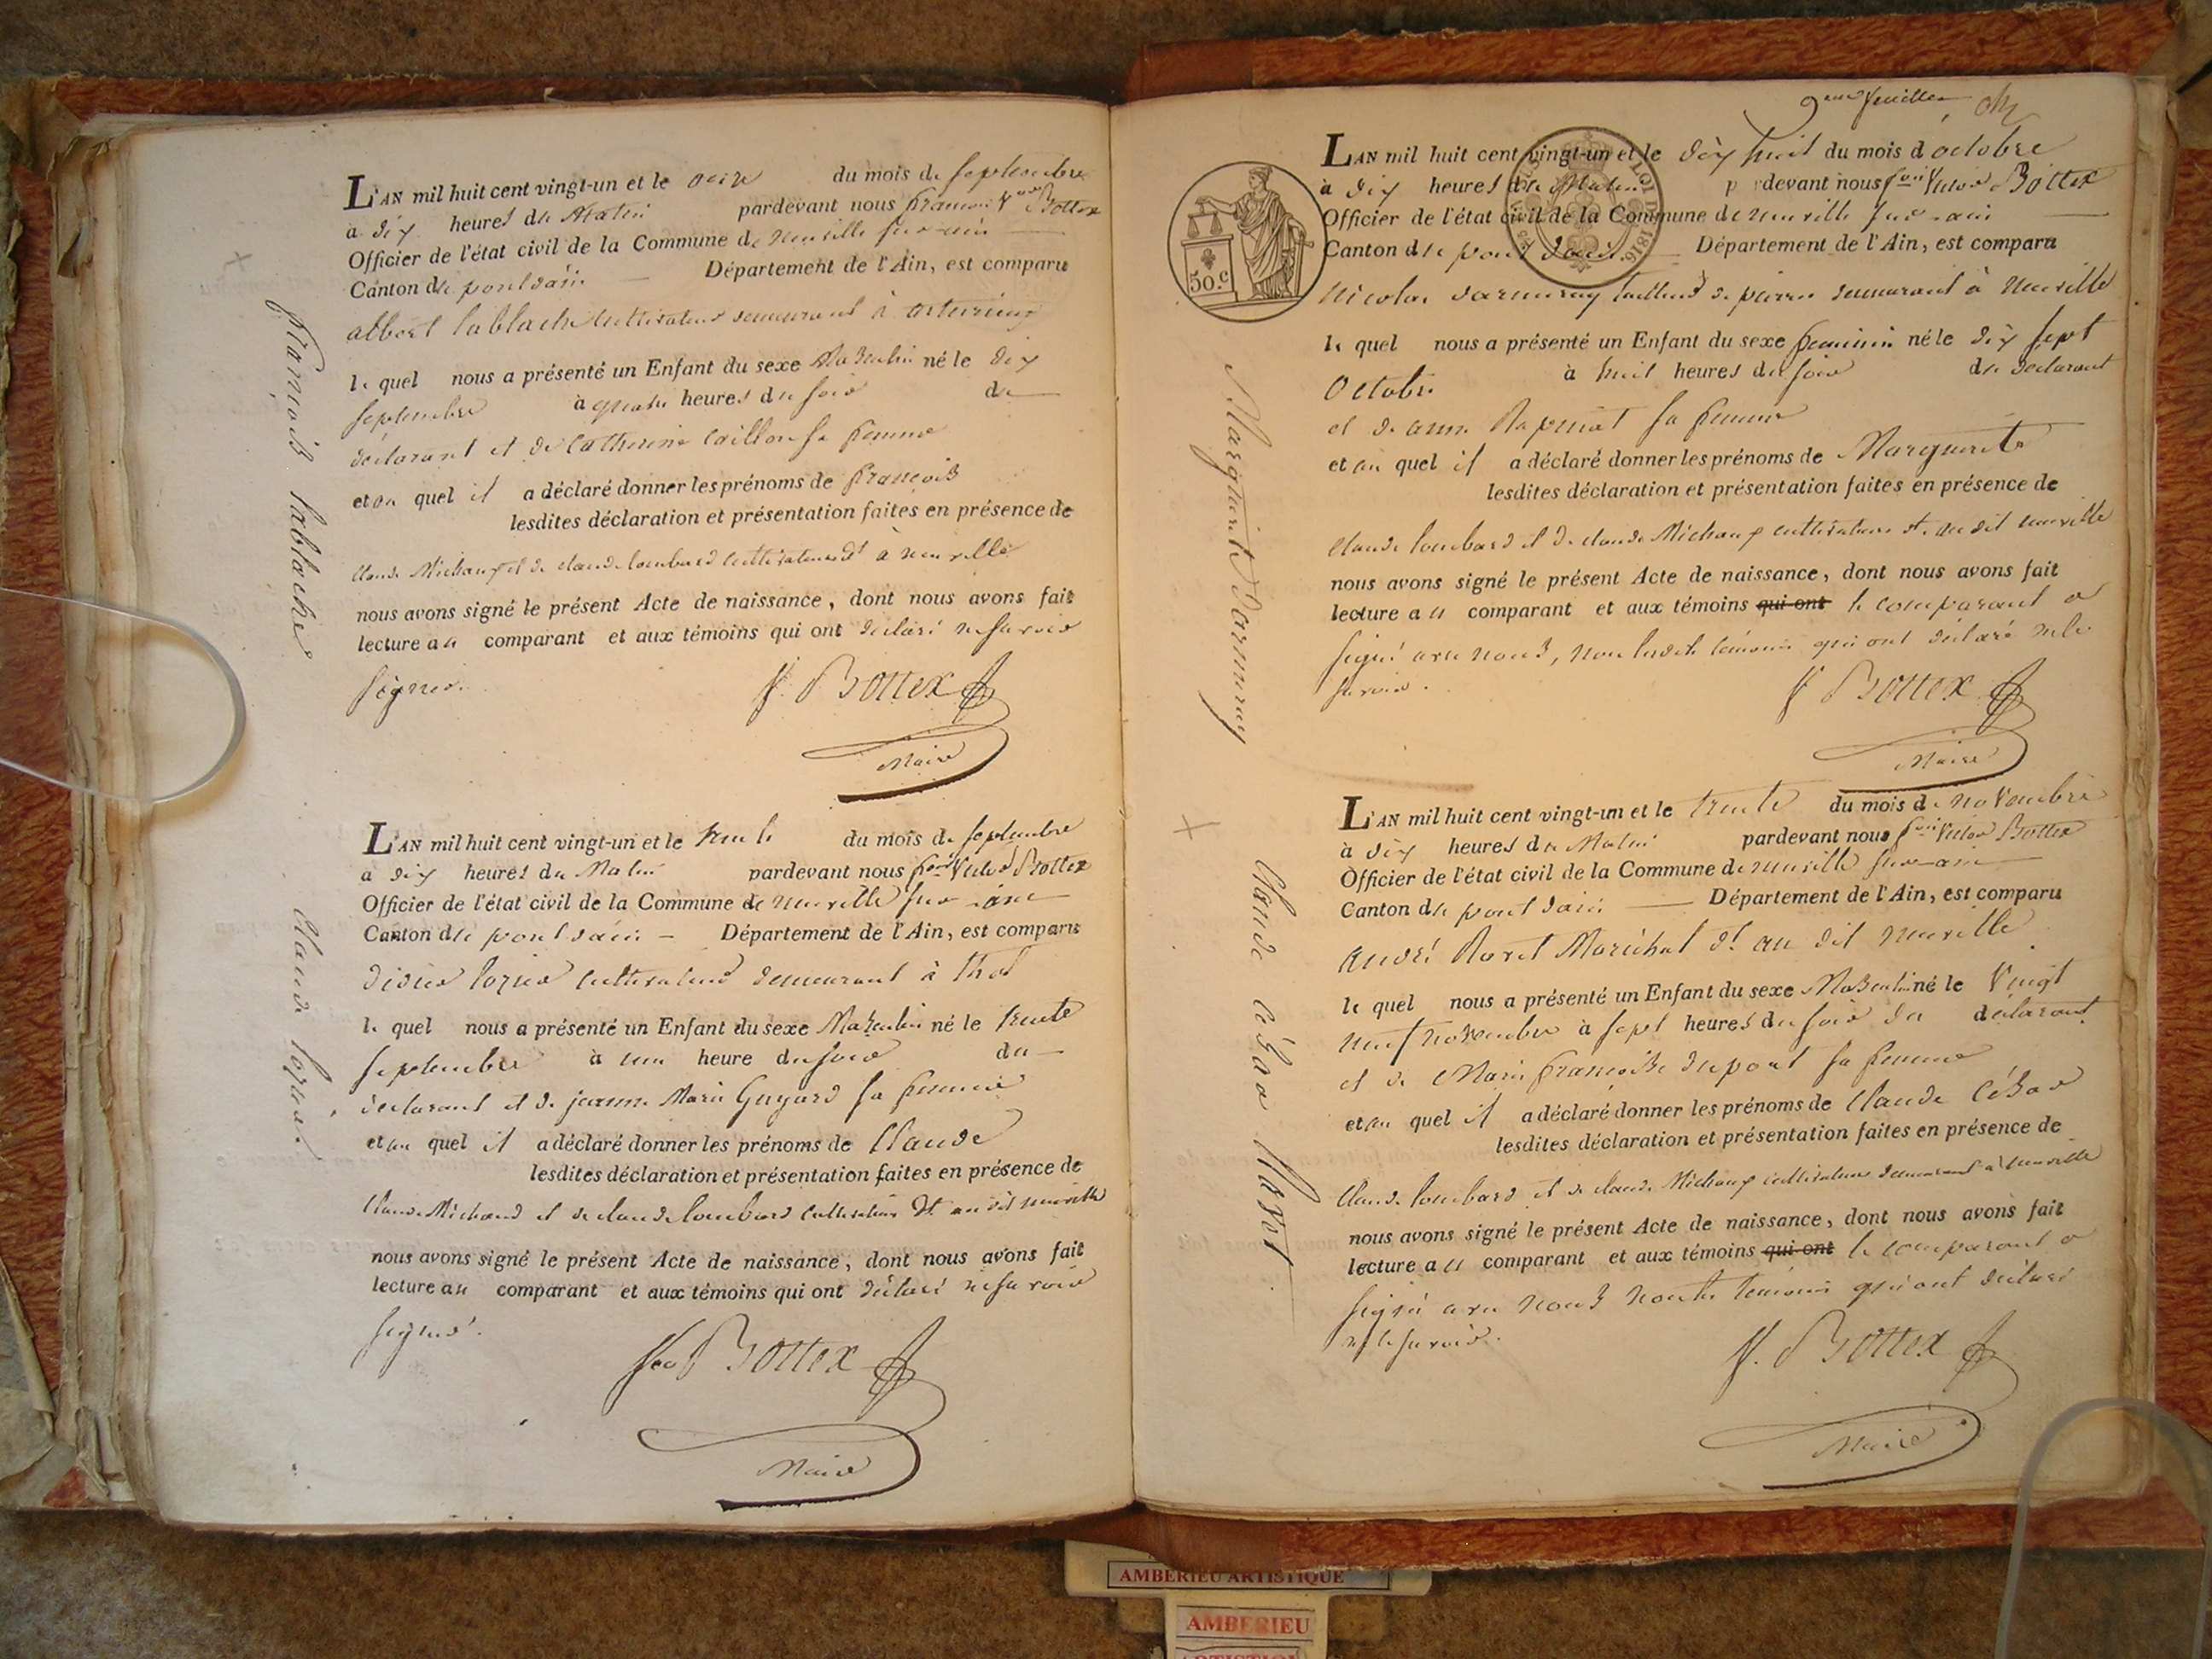 L'AN mil huit cent vingt-un et le onze du mois de septembre
à dix heures du Matin pardevant nous françois Vor Bottex
Officier de l'état civil de la Commune de neuville sur ain
Canton de pont d'ain Département de l'Ain, est comparu
albert lablache cultivateur demeurant à
le quel nous a présenté un Enfant du sexe Masculin né le dix
septembre à quatre heures du soir du
déclarant et de Catherine Caillon sa femme
et au quel il a déclaré donner les prénoms de françois
lesdites déclaration et présentation faites en présence de
claude Michaux et de claude lombard cultivateurs dt à neuville
nous avons signé le présent Acte de naissance, dont nous avons fait
lecture au comparant et aux témoins qui ont déclaré ne savoir
signer.
V. Bottex
Maire
françois lablache
L'AN mil huit cent vingt-un et le trente du mois de septembre
à dix heures du Matin pardevant nous fçois Victor Bottex
Officier de l'état civil de la Commune de neuville sur ain
Canton de pont d'ain Département de l'Ain, est comparu
didier cultivateur demeurant à thol
le quel nous a présenté un Enfant du sexe Masculin né le trente
septembre à une heure du soir du
déclarant et de jeanne Marie Guyard sa femme
et au quel il a déclaré donner les prénoms de Claude
lesdites déclaration et présentation faites en présence de
Claude Michaud et de claude lombard cultivateurs dt au dit neuville
nous avons signé le présent Acte de naissance, dont nous avons fait
lecture au comparant et aux témoins qui ont déclaré ne savoir
signer.
Bottex
Maire
Claude
9eme feuillet
L'AN mil huit cent vingt-un et le dix huit du mois d octobre
à dix heures du Matin pardevant nous fçois Victor Bottex
Officier de l'état civil de la Commune de neuville sur ain
Canton de pont d'ain Département de l'Ain, est comparu
50.c
LOI DE 1816
Nicolas tailleur de pierre demeurant à Neuville
le quel nous a présenté un Enfant du sexe feminin né le dix sept
Octobre à huit heures du soir du declarant
et de anne sa femme
et au quel il a déclaré donner les prénoms de Marguerite
lesdites déclaration et présentation faites en présence de
Claude lombard et de claude Michaux cultivateurs dt au dit neuville
nous avons signé le présent Acte de naissance, dont nous avons fait
lecture au comparant et aux témoins qui ont le comparant a
signé avec nous, non lesdits témoins qui ont déclaré ne le
savoir.
V Bottex
Maire
Marguerite
L'AN mil huit cent vingt-un et le trente du mois de novembre
à dix heures du Matin pardevant nous fçois Victor Bottex
Officier de l'état civil de la Commune de neuville sur ain
Canton de pont d'ain Département de l'Ain, est comparu
André Maréchal dt au dit neuville
le quel nous a présenté un Enfant du sexe Masculin né le Vingt
neuf novembre à sept heures du soir du déclarant
et de Marie françoise dupont sa femme
et au quel il a déclaré donner les prénoms de Claude César
lesdites déclaration et présentation faites en présence de
Claude lombard et de claude Michaux cultivateurs demeurant à neuville
nous avons signé le présent Acte de naissance, dont nous avons fait
lecture au comparant et aux témoins qui ont le comparant a
signé avec nous non les témoins qui ont déclaré
ne le savoir.
V. Bottex
Maire
Claude César
AMBERIEU ARTISTIQUE
AMBERIEU
ARTISTIQUE